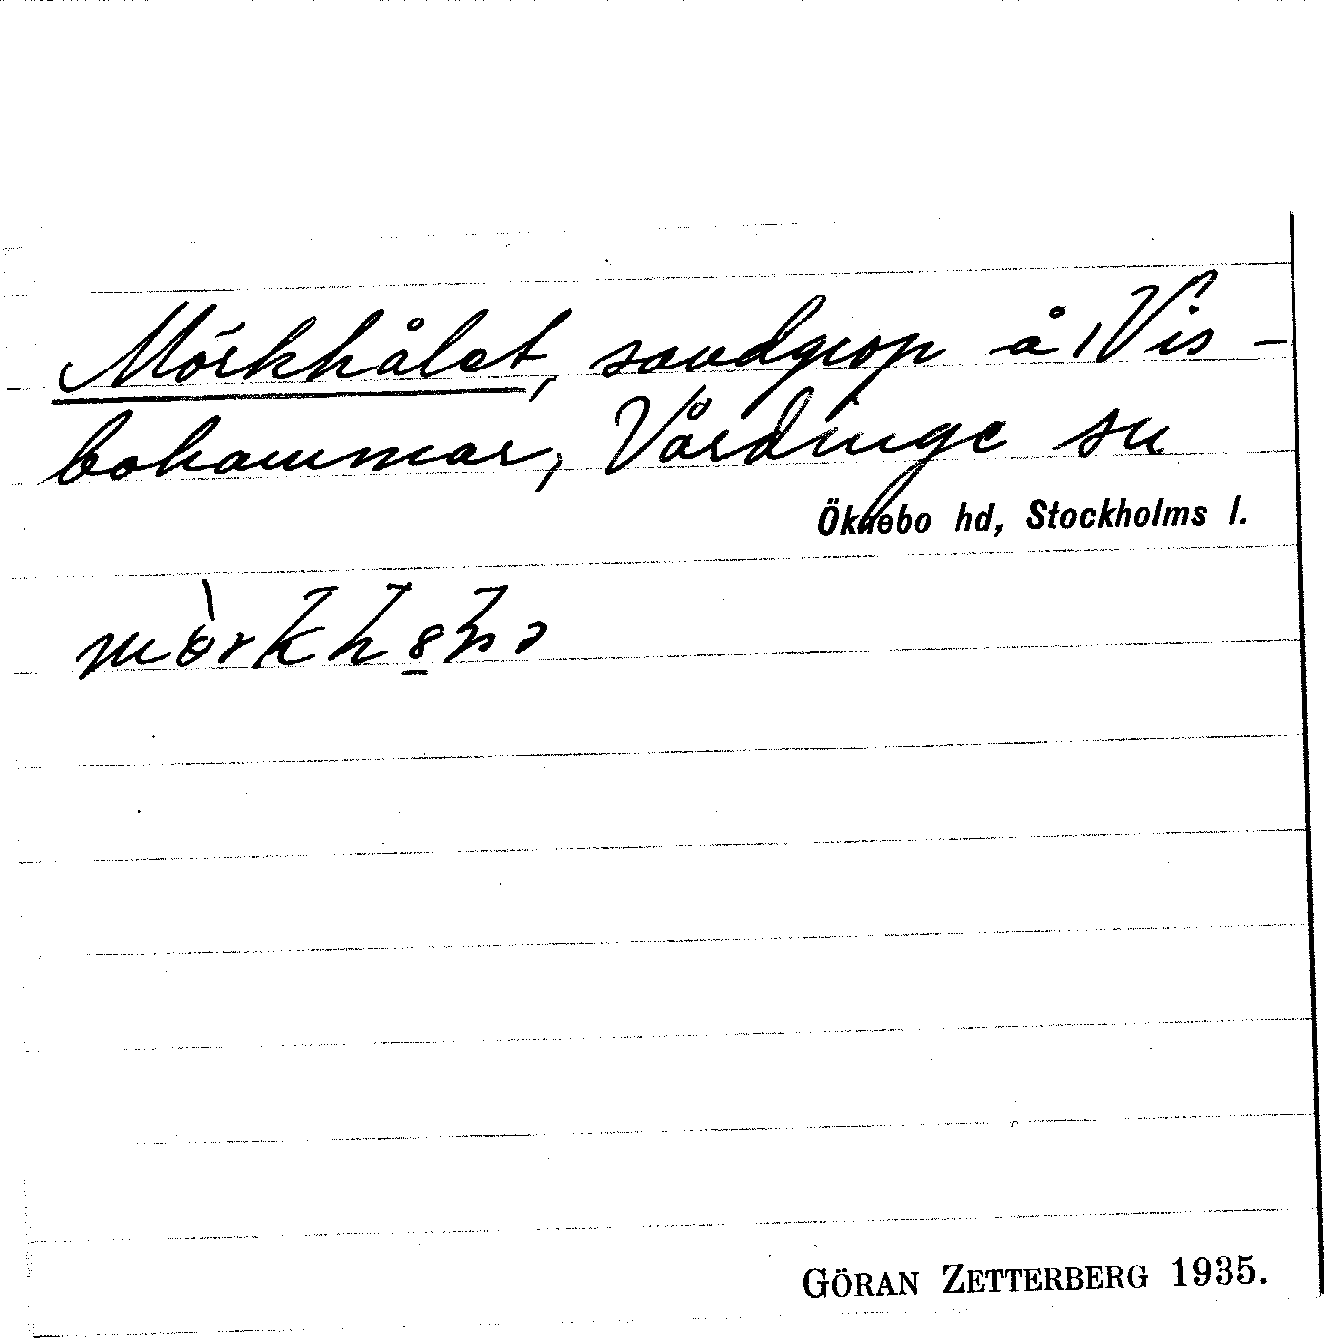 Mörkhålet, sandgrop å Vis-
bohammar, Vårdinge sn
Öknebo hd, Stockholms l.
GÖRAN ZETTERBERG 1935.